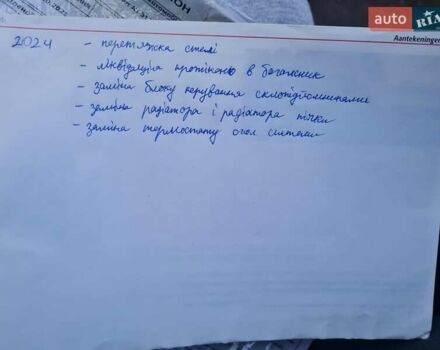 auto RIA
Aantekeningen
2024 - перетяжка стелі
- ліквідація протікання в багажник
- заміна блоку керування склопідйомниками
- заміна радіатора і радіатора пічки
- заміна термостату охол системи